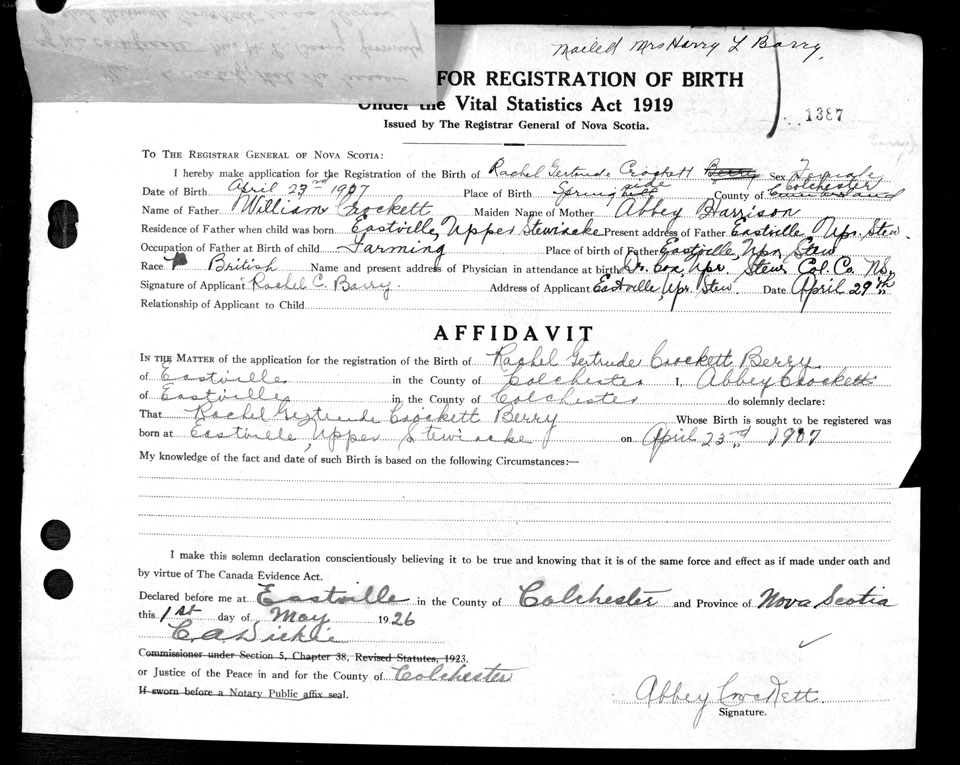 Mailed Mrs Harry L Barry.
FOR REGISTRATION OF BIRTH
Under the Vital Statistics Act 1919
1387
Issued by The Registrar General of Nova Scotia.
TO THE REGISTRAR GENERAL OF NOVA SCOTIA:
I hereby make application for the Registration of the Birth of Rachel Gertrude Crockett Berry Sex Female
Date of Birth April 23rd 1907 Place of Birth Springside County of Colchester Cumberland
Name of Father William Crockett Maiden Name of Mother Abbey Harrison
Residence of Father when child was born Eastville, Upper Stewiacke Present address of Father Eastville, Upr. Stew.
Occupation of Father at Birth of child Farming Place of birth of Father Eastville, Upr. Stew
Race British Name and present address of Physician in attendance at birth Dr. Cox, Upr. Stew. Col. Co. N.S.
Signature of Applicant Rachel C. Barry. Address of Applicant Eastville, Upr. Stew. Date April 29th
Relationship of Applicant to Child
AFFIDAVIT
IN THE MATTER of the application for the registration of the Birth of Rachel Gertrude Crockett Berry
of Eastville in the County of Colchester I, Abbey Crockett
of Eastville in the County of Colchester do solemnly declare:
That Rachel Gertrude Crockett Berry Whose Birth is sought to be registered was
born at Eastville, Upper Stewiacke on April 23rd 1907
My knowledge of the fact and date of such Birth is based on the following Circumstances:—
I make this solemn declaration conscientiously believing it to be true and knowing that it is of the same force and effect as if made under oath and
by virtue of The Canada Evidence Act.
Declared before me at Eastville in the County of Colchester and Province of Nova Scotia
this 1st day of May 1926
C. A. Dickie
Commissioner under Section 5, Chapter 38, Revised Statutes, 1923.
or Justice of the Peace in and for the County of Colchester
If sworn before a Notary Public affix seal.
Abbey Crockett.
Signature.